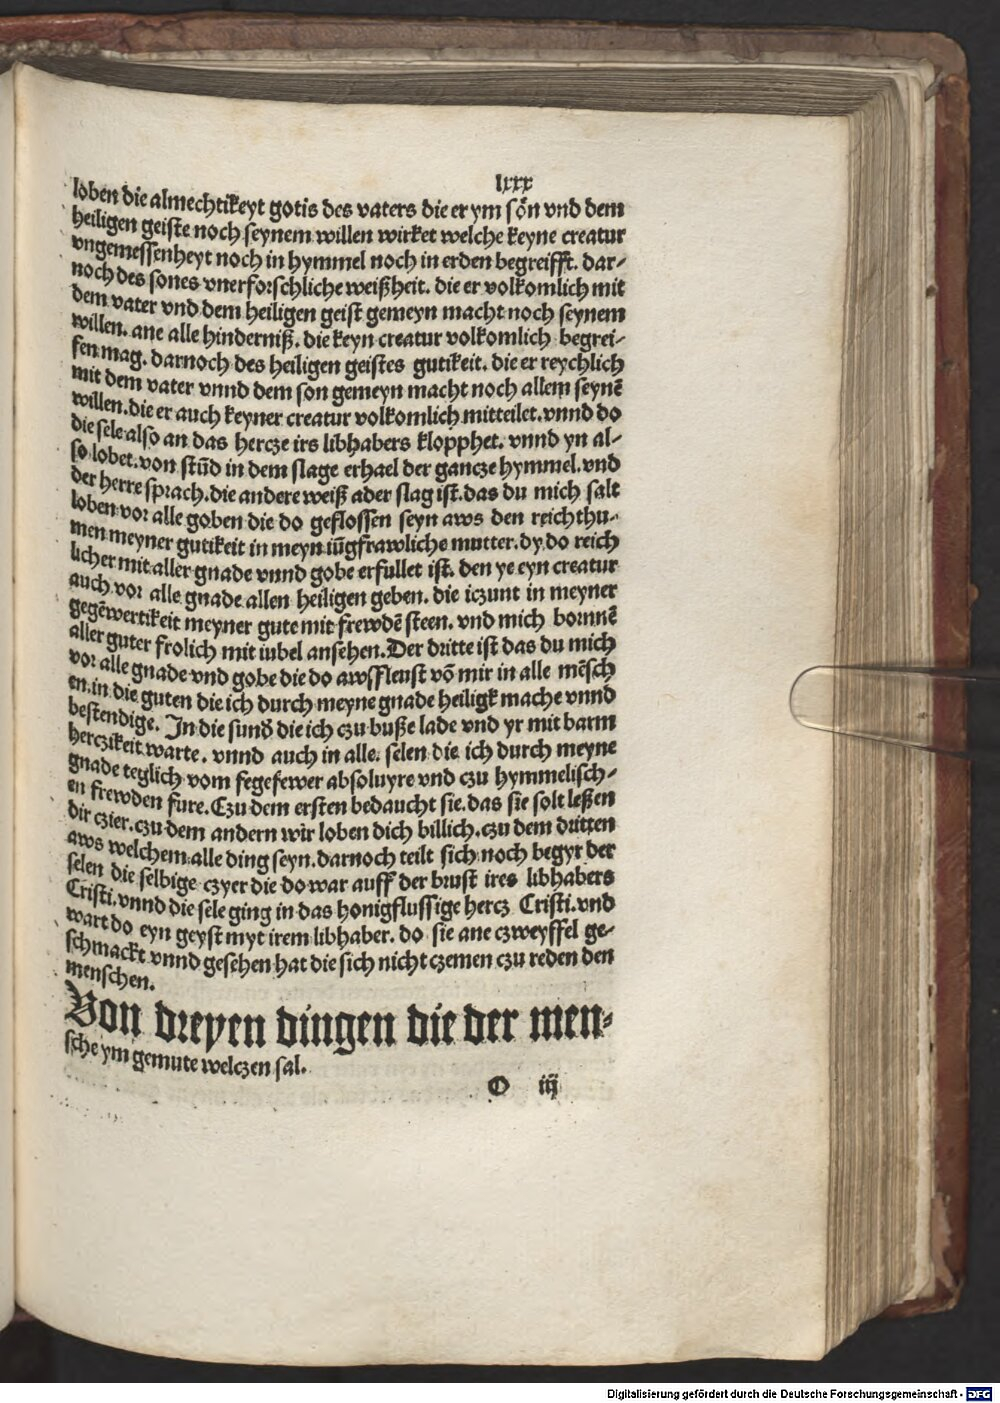 lxxx
loben die almechtikeyt gotis des vaters die er ym sõn vnd dem
heiligen geiste noch seynem willen wirket welche keyne creatur
vngemessenheyt noch in hymmel noch in erden begreifft. dar-
noch des sones vnerforschliche weißheit. die er volkomlich mit
dem vater vnd dem heiligen geist gemeyn macht noch seynem
willen. ane alle hinderniß. die keyn creatur volkomlich begrei-
fen mag. darnoch des heiligen geistes gutikeit. die er reychlich
mit dem vater vnnd dem son gemeyn macht noch allem seynẽ
willen. die er auch keyner creatur volkomlich mitteilet. vnnd do
die sele also an das hercze irs libhabers klopphet. vnnd yn al-
so lobet. von stũd in dem slage erhael der gancze hymmel. vnd
der herre sprach. die andere weiß ader slag ist. das du mich salt
loben vor alle goben die do geflossen seyn aws den reichthu-
men meyner gutikeit in meyn iũgfrawliche mutter. dy do reich
licher mit aller gnade vnnd gobe erfullet ist. den ye eyn creatur
auch vor alle gnade allen heiligen geben. die iczunt in meyner
gegẽwertikeit meyner gute mit frewdẽ steen. vnd mich bornnẽ
aller guter frolich mit iubel ansehen. Der dritte ist das du mich
vor alle gnade vnd gobe die do awsfleust võ mir in alle mẽsch
en. in die guten die ich durch meyne gnade heiligk mache vnnd
bestendige. In die sunð die ich czu buße lade vnd yr mit barm
herczikeit warte. vnnd auch in alle. selen die ich durch meyne
gnade teglich vom fegefewer absoluyre vnd czu hymmelisch-
en frewden fure. Czu dem ersten bedaucht sie. das sie solt leßen
dir czier. czu dem andern wir loben dich billich. czu dem dritten
aws welchem alle ding seyn. darnoch teilt sich noch begyr der
selen die selbige czyer die do war auff der brust ires libhabers
Cristi. vnnd die sele ging in das honigflussige hercz Cristi. vnd
wart do eyn geyst myt irem libhaber. do sie ane czweyffel ge-
schmackt vnnd gesehen hat die sich nicht czemen czu reden den
menschen.
Von dreyen dingen die der men-
sche ym gemute welczen sal.
O iij
Digitalisierung gefördert durch die Deutsche Forschungsgemeinschaft - DFG